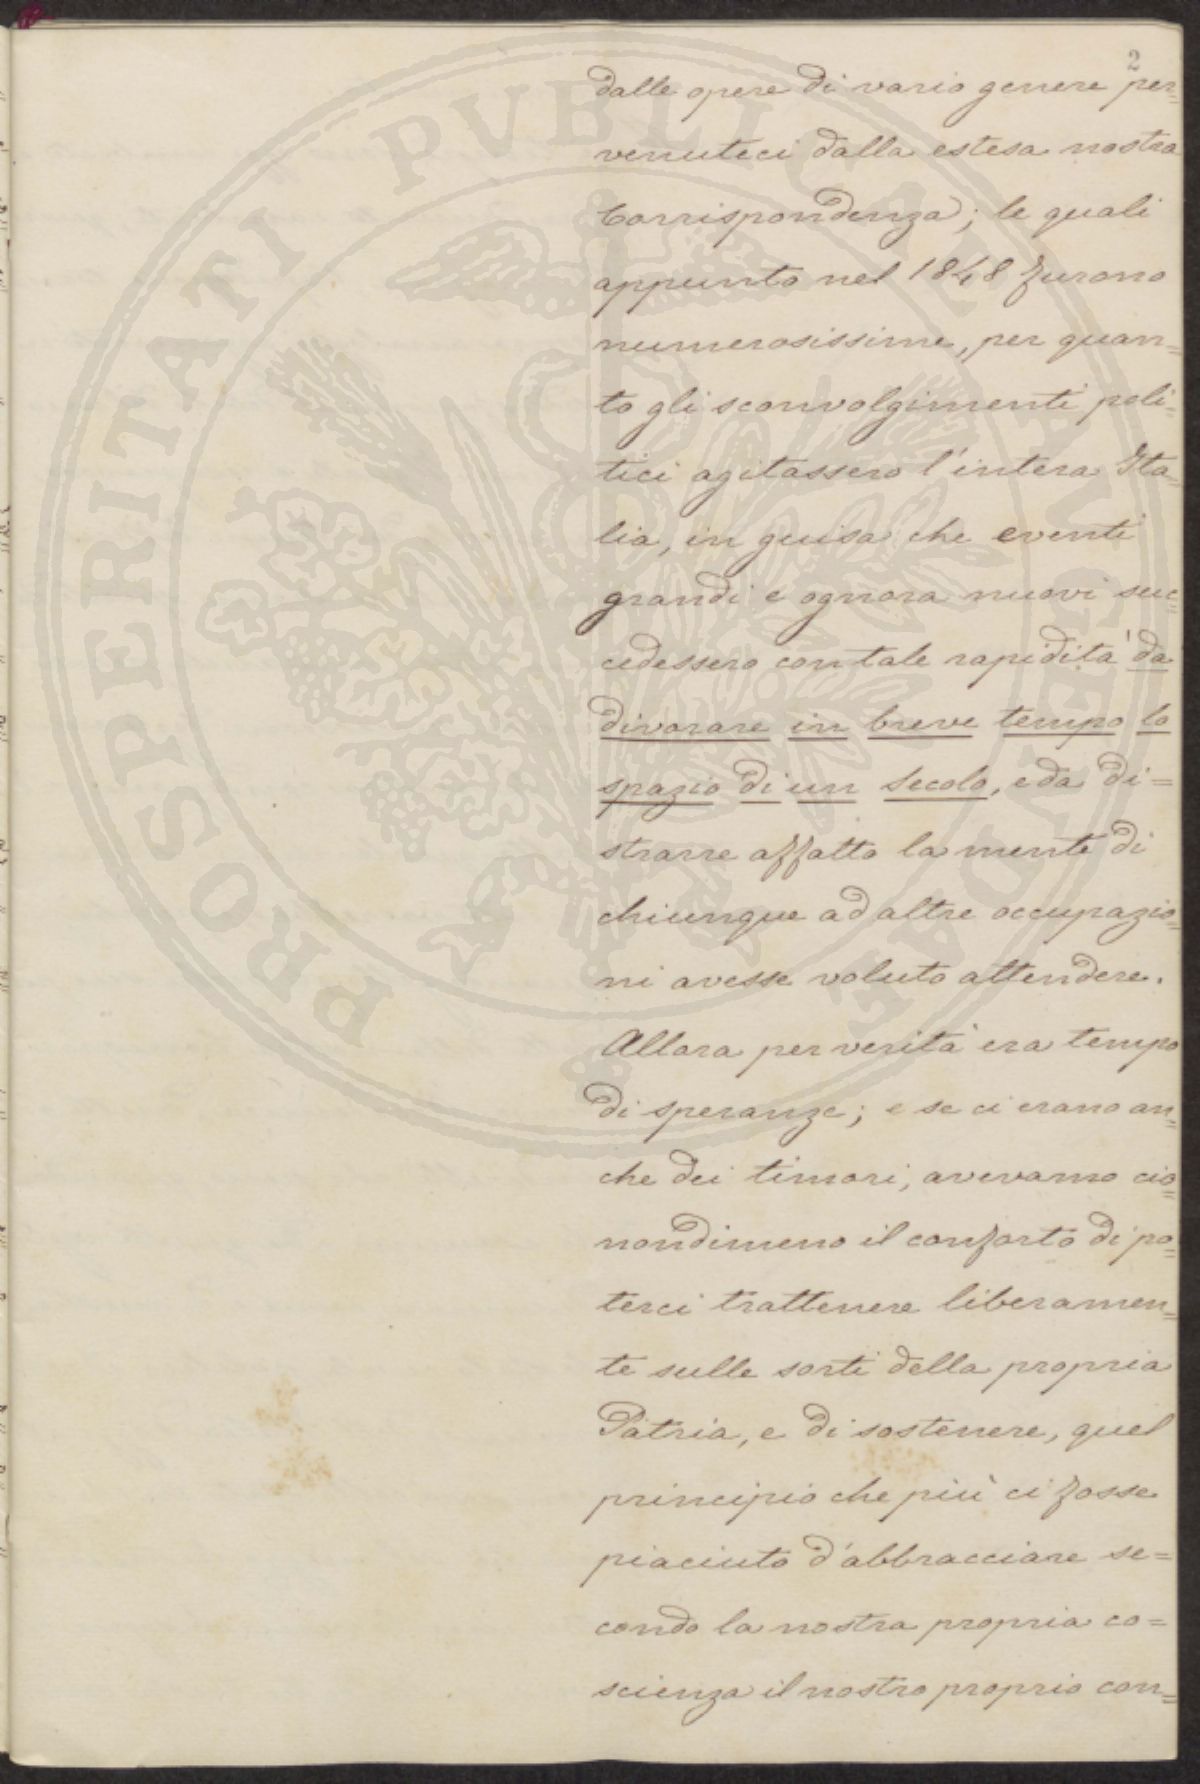 2
dalle opere di vario genere per=
venuteci dalla estesa nostra
Corrispondenza; le quali
appunto nel 1848 furono
numerosissime, per quan=
to gli sconvolgimenti poli=
tici agitassero l'intera Ita=
lia, in guisa che eventi
grandi e ognora nuovi suc=
cedessero con tale rapidità da
divorare in breve tempo lo
spazio di un secolo, e da di=
strarre affatto la mente di
chiunque ad altre occupazio=
ni avesse voluto attendere.
Allora per verità era tempo
di speranze; e se ci erano an=
che dei timori, avevamo cio=
nondimeno il conforto di po=
terci trattenere liberamen=
te sulle sorti della propria
Patria, e di sostenere, quel
principio che più ci fosse
piaciuto d'abbracciare se=
condo la nostra propria co=
scienza il nostro proprio con=
PROSPERITATI PVBLICAE AVGENDAE